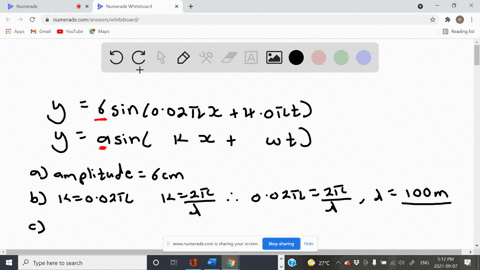 Numerade
Numerade Whiteboard
numerade.com/answers/whiteboard/
Apps
Gmail
YouTube
Maps
Reading list
y = 6 sin(0.02πx + 4.0πt)
y = a sin( Kx + ωt)
a) amplitude = 6cm
b) K = 0.02π K = 2π/λ ∴ 0.02π = 2π/λ , λ = 100m
c)
www.numerade.com is sharing your screen.
Stop sharing
Hide
Type here to search
27°C
ENG
5:12 PM
2021-09-07